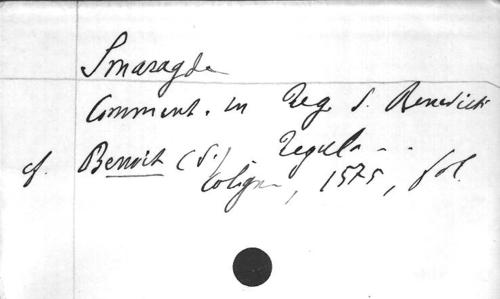 Smaragde
Comment. in Reg. S. Benedicti
cf. Benoit (S.) Regula ..
Cologne, 1575, fol.